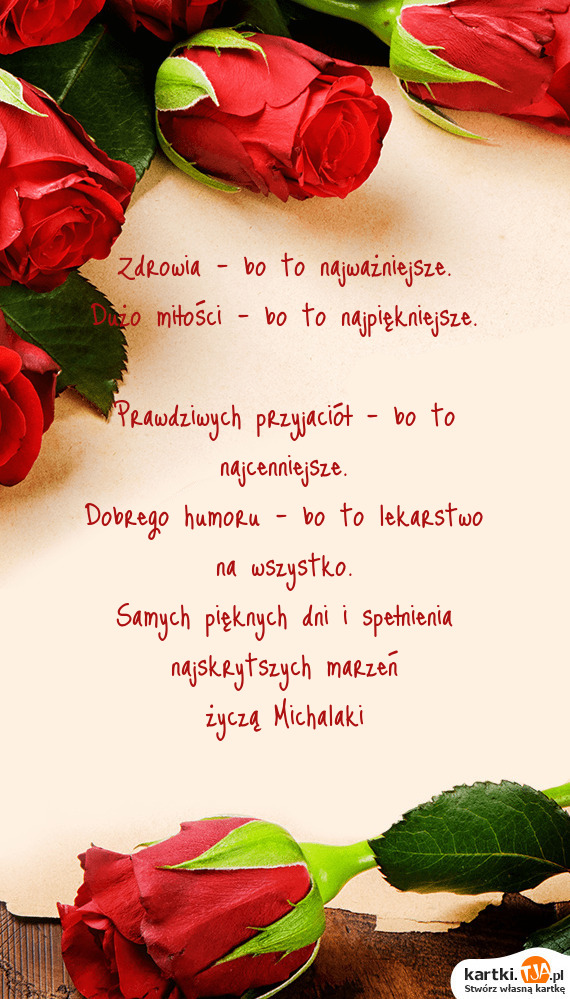 Zdrowia - bo to najważniejsze.
Dużo miłości - bo to najpiękniejsze.
Prawdziwych przyjaciół - bo to
najcenniejsze.
Dobrego humoru - bo to lekarstwo
na wszystko.
Samych pięknych dni i spełnienia
najskrytszych marzeń
życzą Michalaki
kartki.TJA.pl
Stwórz własną kartkę